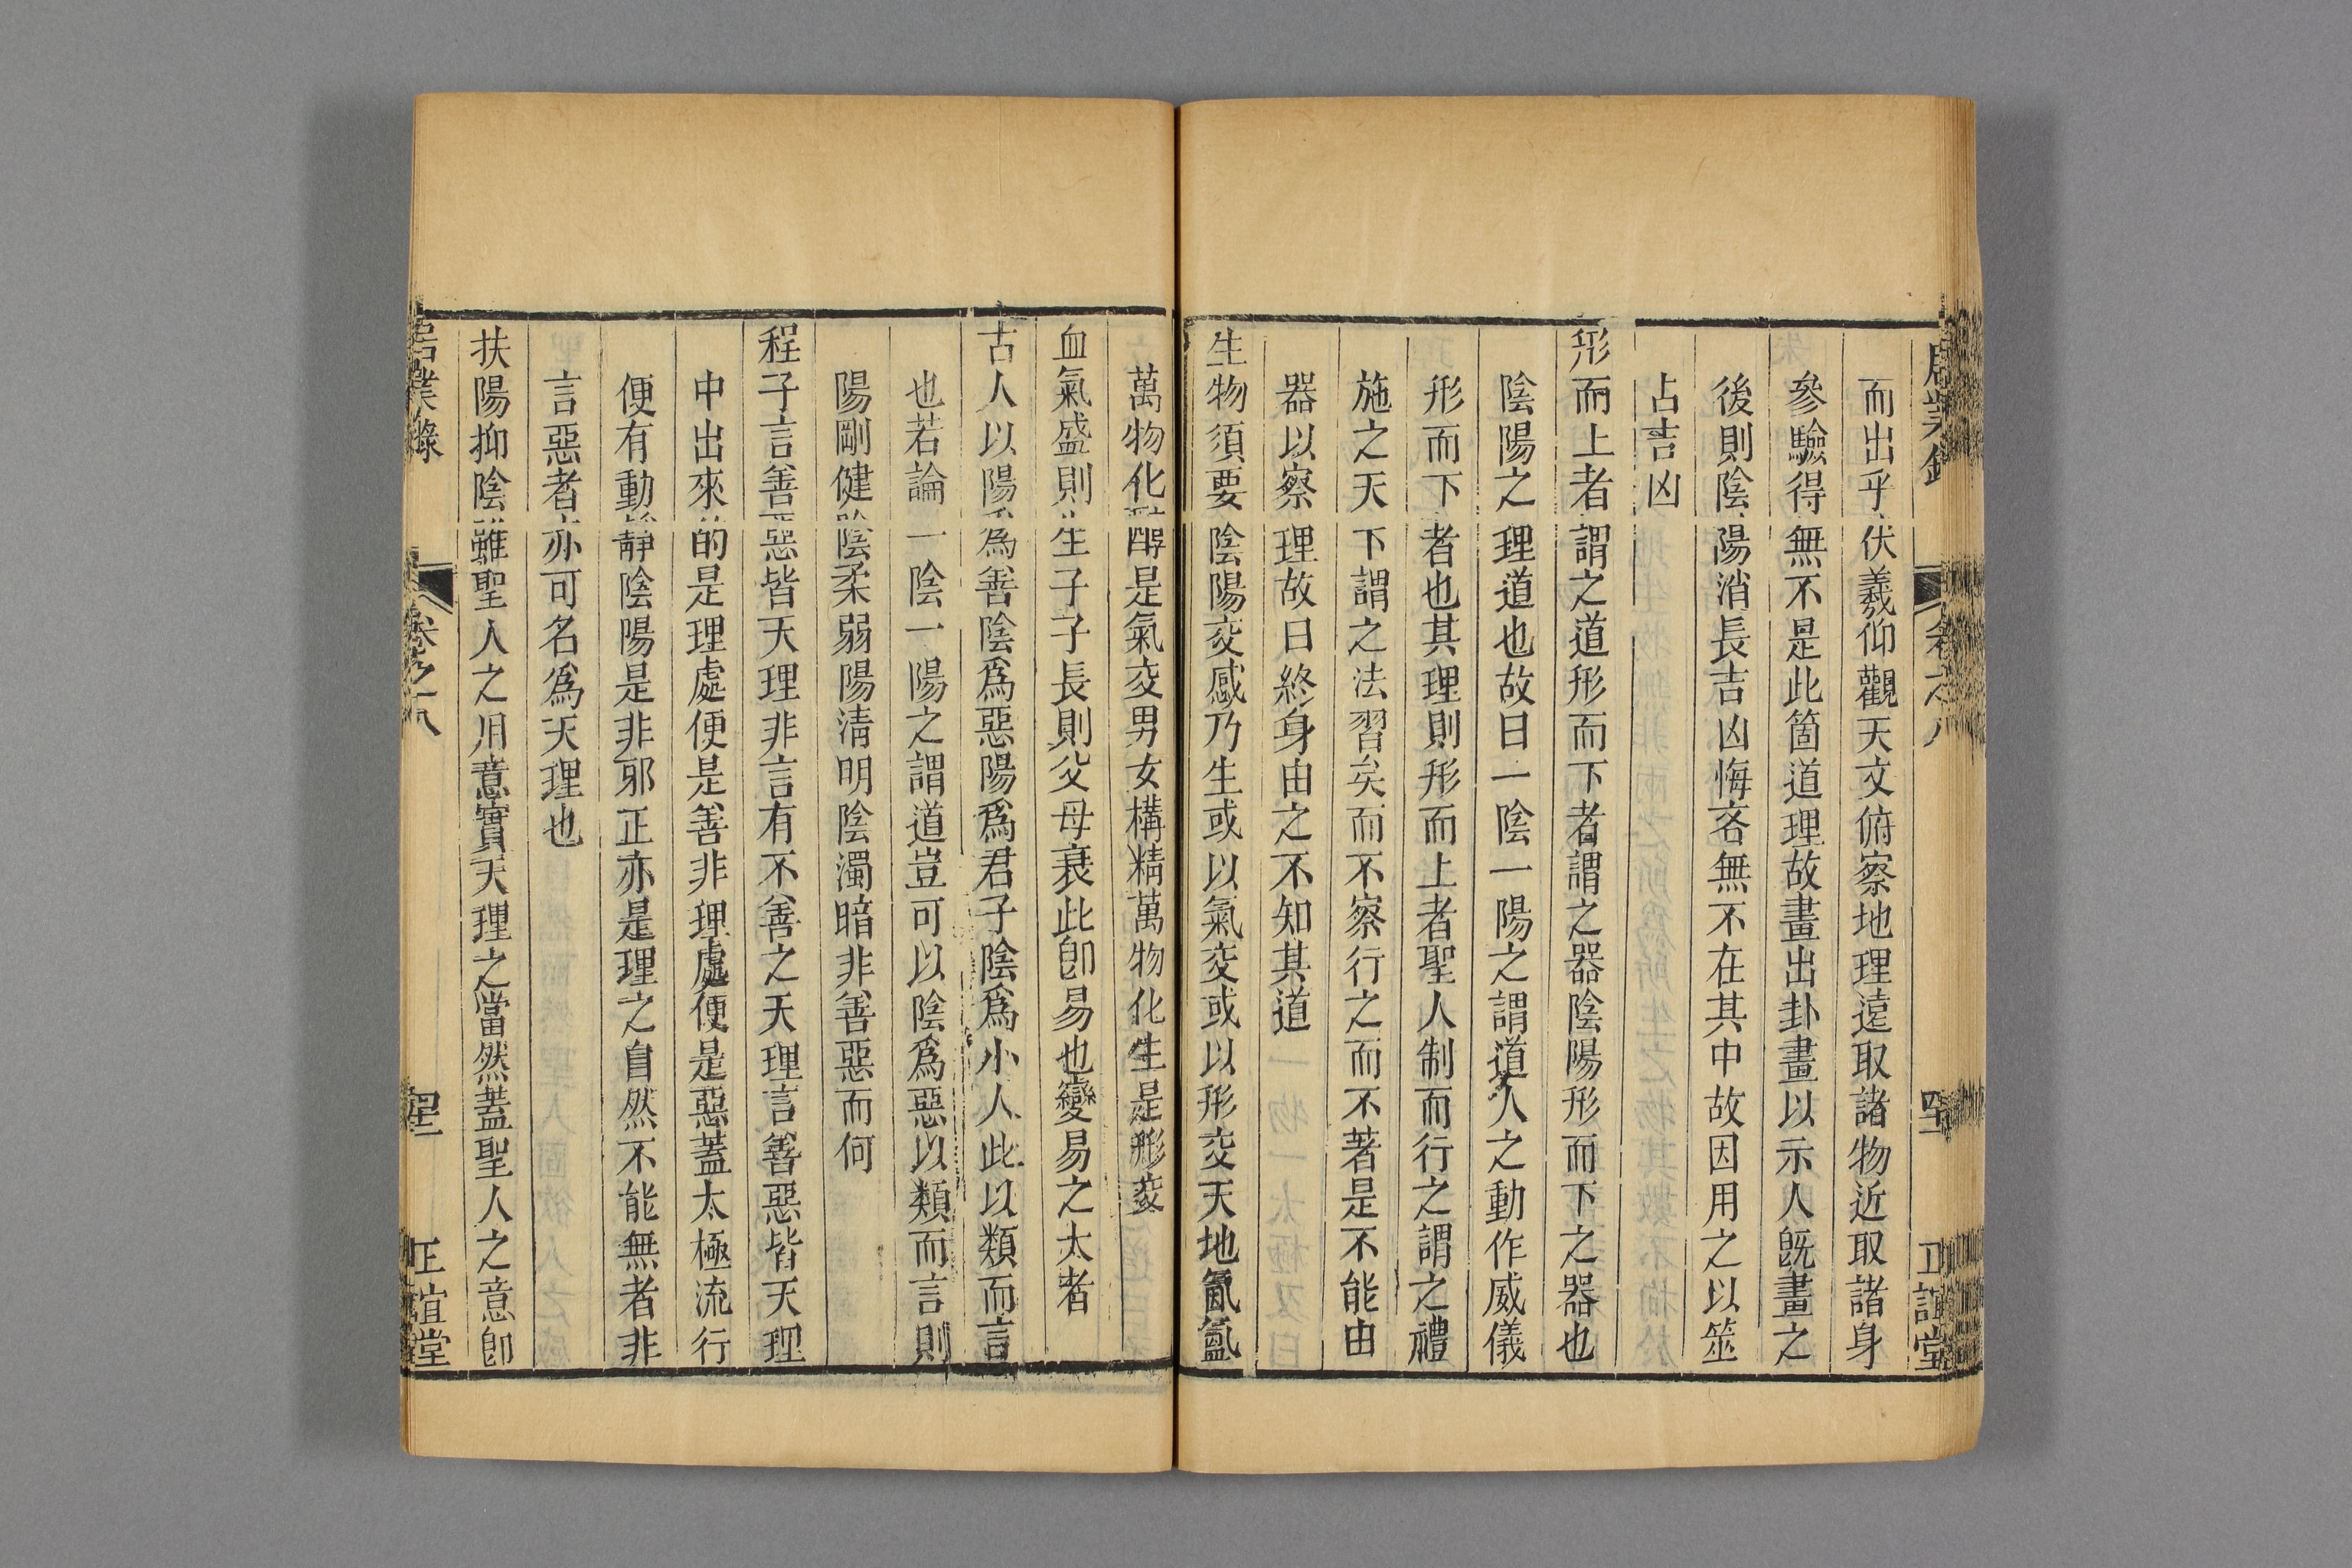 居業錄 卷之八 正誼堂
而出乎伏羲仰觀天文俯察地理遠取諸物近取諸身
參驗得無不是此箇道理故畫出卦畫以示人旣畫之
後則陰陽消長吉凶悔吝無不在其中故因用之以筮
占吉凶
形而上者謂之道形而下者謂之器陰陽形而下之器也
陰陽之理道也故曰一陰一陽之謂道人之動作威儀
形而下者也其理則形而上者聖人制而行之謂之禮
施之天下謂之法習矣而不察行之而不著是不能由
器以察理故曰終身由之不知其道
生物須要陰陽交感乃生或以氣交或以形交天地氤氳
萬物化醇是氣交男女構精萬物化生是形交
血氣盛則生子子長則父母衰此卽易也變易之太者
古人以陽爲善陰爲惡陽爲君子陰爲小人此以類而言
也若論一陰一陽之謂道豈可以陰爲惡以類而言則
陽剛健陰柔弱陽淸明陰濁暗非善惡而何
程子言善惡皆天理非言有不善之天理言善惡皆天理
中出來的是理處便是善非理處便是惡蓋太極流行
便有動靜陰陽是非邪正亦是理之自然不能無者非
言惡者亦可名爲天理也
扶陽抑陰雖聖人之用意實天理之當然蓋聖人之意卽
居業錄 卷之八 正誼堂